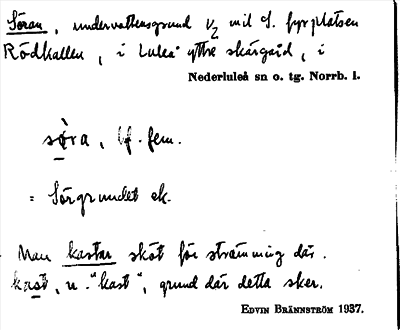 Söran, undervattensgrund 1/2 mil S. fyrplatsen
Rödkallen, i Luleå yttre skärgård, i
Nederluleå sn o. tg. Norrb. l.
sø̀ra, bf. fem.
= Sörgrundet ek.
Man kastar sköt för strömming där.
kast, n. "kast", grund där detta sker.
EDVIN BRÄNNSTRÖM 1937.